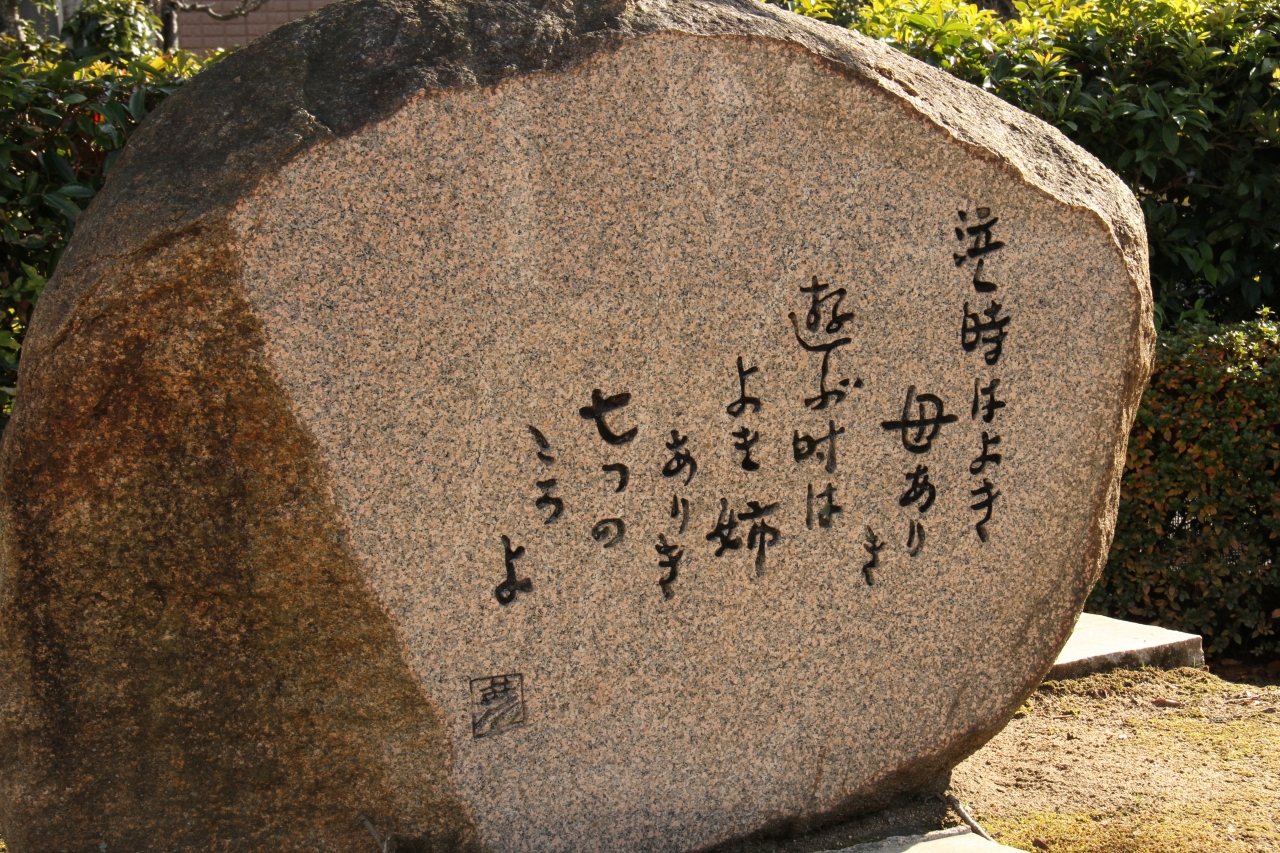 泣く時はよき
母ありき
遊ぶ時は
よき姉
ありき
七つの
ころよ
夢